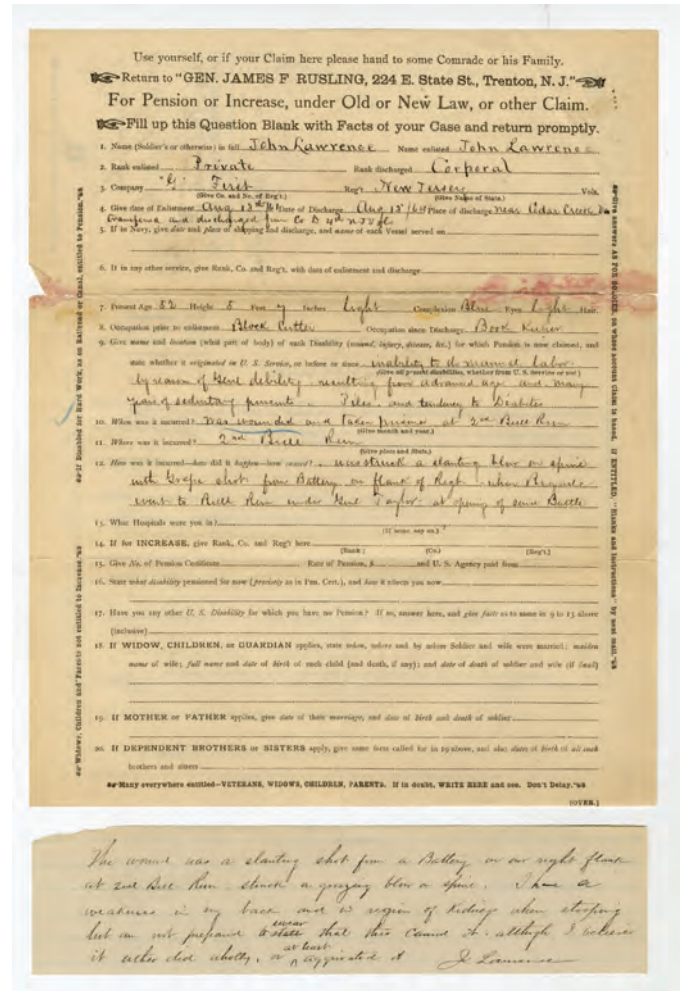 Use yourself, or if your Claim here please hand to some Comrade or his Family.
Return to "GEN. JAMES F RUSLING, 224 E. State St., Trenton, N. J."
For Pension or Increase, under Old or New Law, or other Claim.
Fill up this Question Blank with Facts of your Case and return promptly.
1. Name (Soldier's or otherwise) in full John Lawrence Name enlisted John Lawrence
2. Rank enlisted Private Rank discharged Corporal
3. Company "G" First Reg't New Jersey Vols.
(Give Co. and No. of Reg't.) (Give Name of State.)
4. Give date of Enlistment Aug 13th/61 Date of Discharge Aug 15/64 Place of discharge near Cedar Creek Va
Transferred and discharged from Co D 4th NJ Vols
5. If in Navy, give date and place of shipping and discharge, and name of each Vessel served on
6. If in any other service, give Rank, Co. and Reg't, with date of enlistment and discharge
7. Present Age 52 Height 5 Feet 7 Inches Light Complexion Blue Eyes Light Hair.
8. Occupation prior to enlistment Block Cutter Occupation since Discharge Book Keeper
9. Give name and location (what part of body) of each Disability (wound, injury, disease, &c.) for which Pension is now claimed, and
state whether it originated in U. S. Service, or before or since inability to do manual labor
(Give all present disabilities, whether from U. S. Service or not)
by reason of Genl debility resulting from advanced age and many
years of sedentary Piles and tendency to Diabetes
10. When was it incurred? was wounded and taken prisoner at 2nd Bull Run
(Give month and year.)
11. Where was it incurred? 2nd Bull Run
(Give place and State.)
12. How was it incurred—how did it happen—how caused? was struck a slanting blow on spine
with Grape shot from Battery on flank of Regt when Brigade
went to Bull Run under Genl Taylor at opening of same Battle
13. What Hospitals were you in?
(If none, say so.)
14. If for INCREASE, give Rank, Co. and Reg't here
(Rank:) (Co.) (Reg't.)
15. Give No. of Pension Certificate Rate of Pension, $ and U. S. Agency paid from
16. State what disability pensioned for now (precisely as in Pen. Cert.), and how it affects you now
17. Have you any other U. S. Disability for which you have no Pension? If so, answer here, and give facts as to same in 9 to 13 above
(inclusive)
18. If WIDOW, CHILDREN, or GUARDIAN applies, state when, where and by whom Soldier and wife were married; maiden
name of wife; full name and date of birth of each child (and death, if any); and date of death of soldier and wife (if dead)
19. If MOTHER or FATHER applies, give date of their marriage, and date of birth and death of soldier
20. If DEPENDENT BROTHERS or SISTERS apply, give same facts called for in 19 above, and also dates of birth of all such
brothers and sisters
Many everywhere entitled—VETERANS, WIDOWS, CHILDREN, PARENTS. If in doubt, WRITE HERE and see. Don't Delay.
(OVER.)
If Disabled for Hard Work, as on Railroad or Canal, entitled to Pension.
Widows, Children and Parents not entitled to Increase.
Give answers AS FOR SOLDIER, on whose account Claim is based. IF ENTITLED, "Blanks and Instructions" by next mail.
The wound was a slanting shot from a Battery on our right flank
at 2nd Bull Run struck a grazing blow on spine. I have a
weakness in my back and in region of Kidneys when stooping
but am not prepared to swear state that this caused it although I believe
it either did wholly, or at least aggravated it J Lawrence